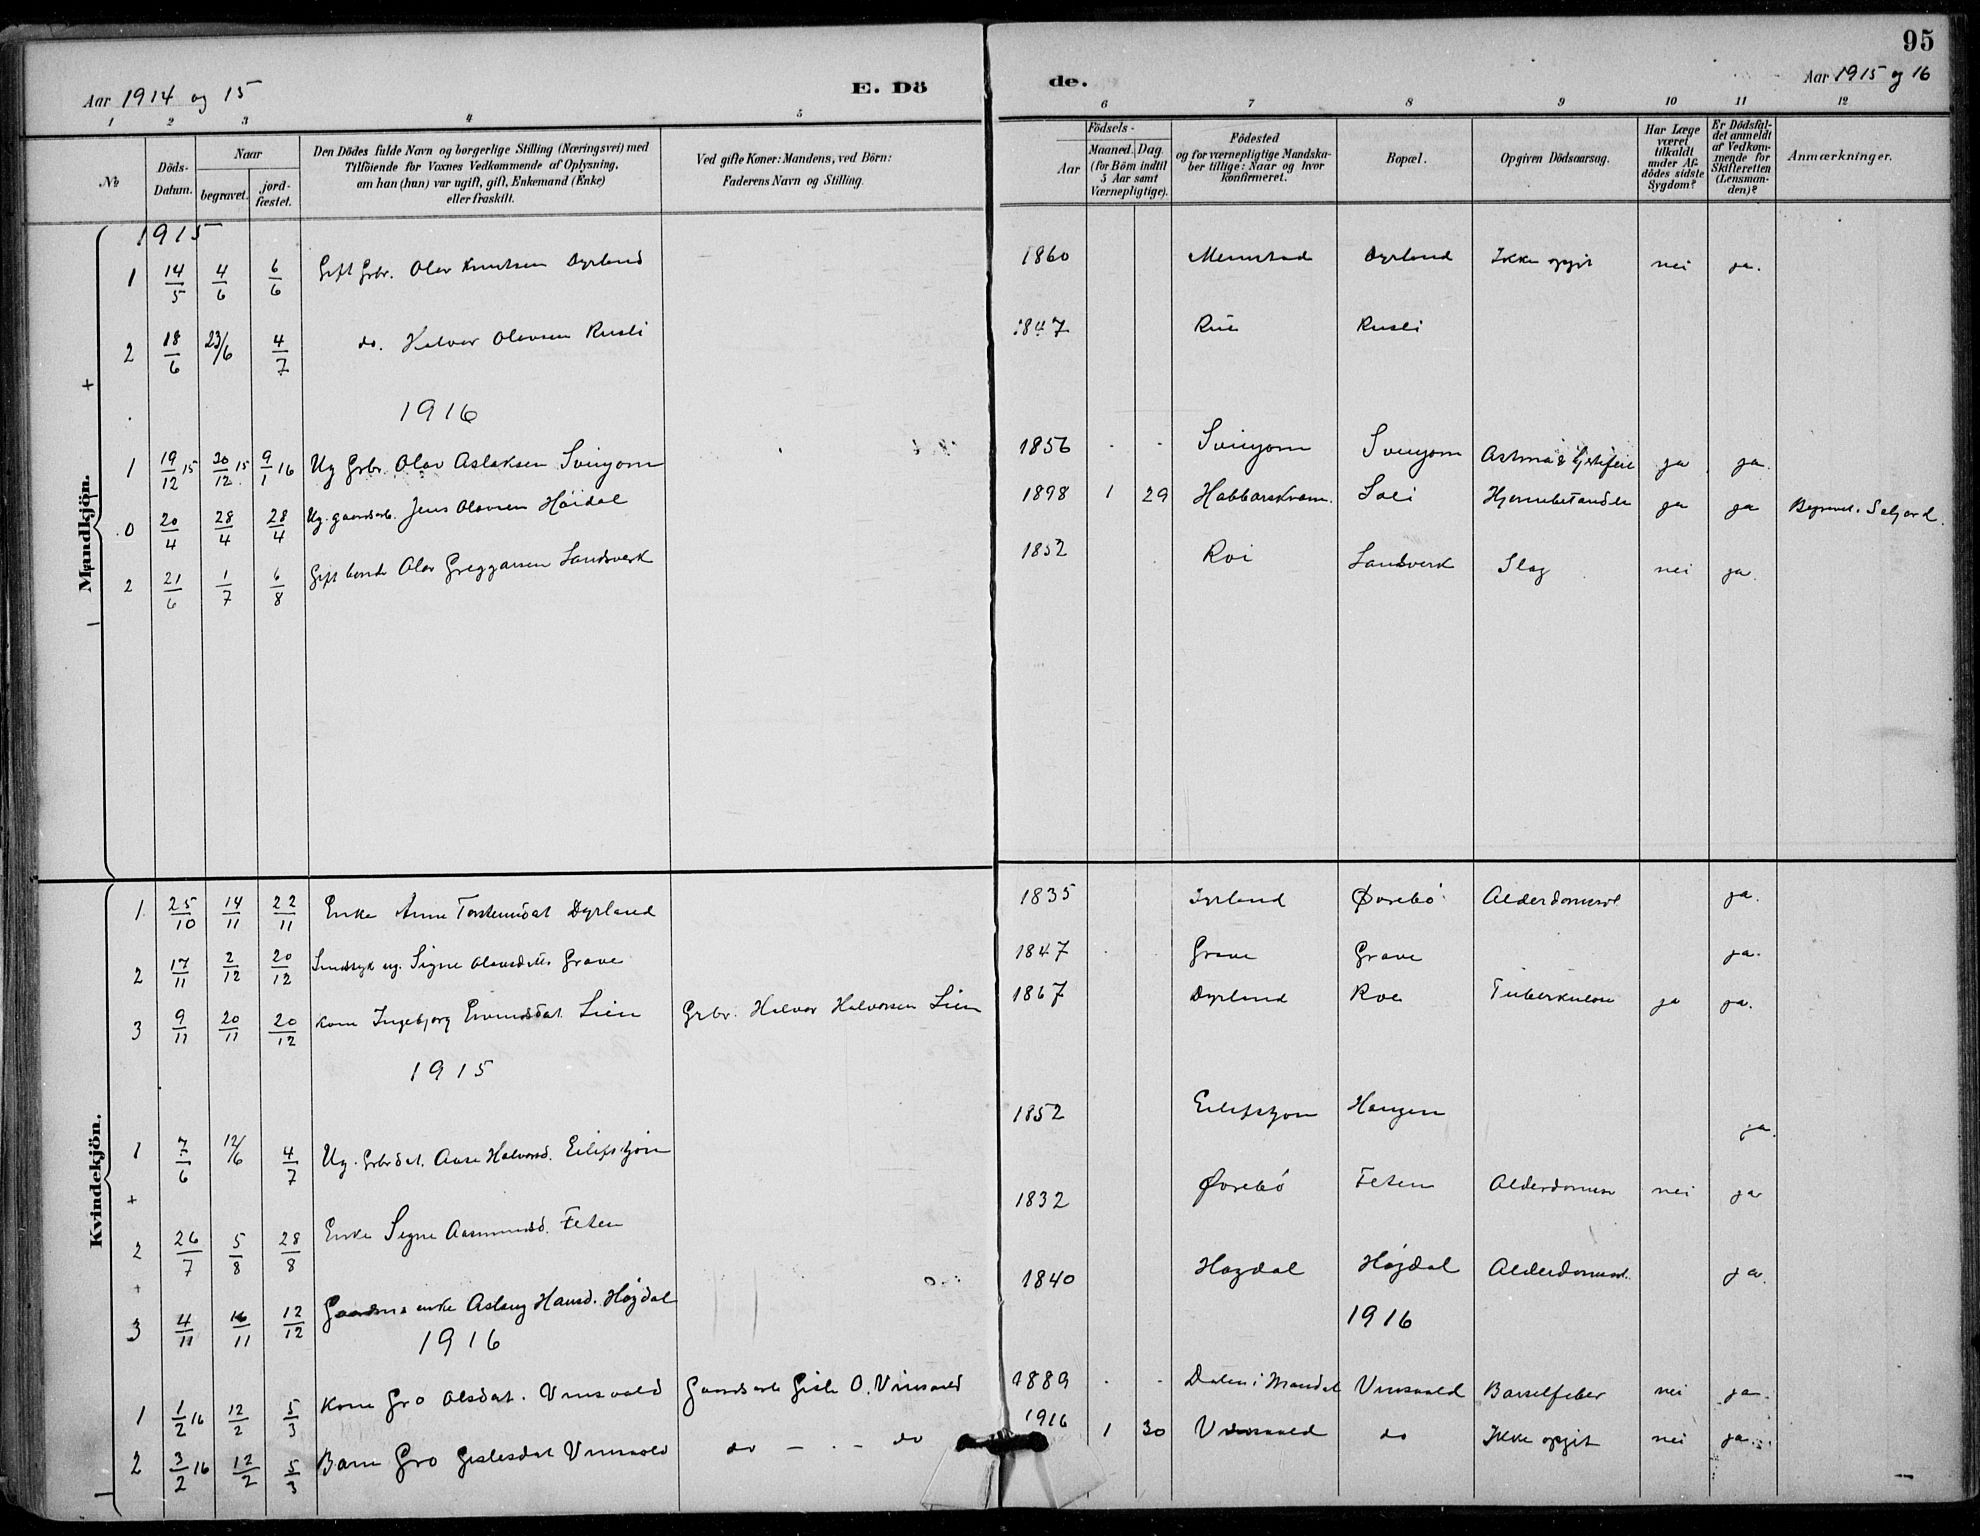 95
Aar 1914 og 15
E. Dö
de.
Aar 1915 og 16
1 2 3 4 5 6 7 8 9 10 11 12
No.
Döds-Datum.
Naar
begravet.
jord-fæstet.
Den Dödes fulde Navn og borgerlige Stilling (Næringsvei) med
Tilföiende for Voxnes Vedkommende af Oplysning,
om han (hun) var ugift, gift, Enkemand (Enke)
eller fraskilt.
Ved gifte Koner: Mandens, ved Börn:
Faderens Navn og Stilling.
Födsels-
Aar
Maaned. Dag.
(for Börn indtil
5 Aar samt
Værnepligtige).
Födested
og for værnepligtige Mandska-
ber tillige: Naar og hvor
konfirmeret.
Bopæl.
Opgiven Dödsaarsag.
Har Læge
været
tilkaldt
under Af-
dödes sidste
Sygdom?
Er Dödsfal-
det anmeldt
af Vedkom-
mende for
Skifteretten
(Lensman-
den)?
Anmærkninger.
Mandkjön.
1915
1 14/5 4/6 6/6 Gift Grbr. Olav Knutsen Dyrland 1860 Dyrland Ikke opgit nei ja.
2 18/6 23/6 4/7 do. Halvor Olavsen Rusli 1847 Rui Rusli
1916
1 19/12 15 30/12 15 9/1 16 Ug Grbr. Olav Aslaksen Svinjom 1856 Svinjom Svinjom Astma & ja ja.
0 20/4 28/4 28/4 Ug. gaardarb. Jens Olavsen Höidal 1898 1 29 Habbarskvam. Loli Hjernebetændelse ja ja Begravet i Seljord.
2 21/6 1/7 6/8 Gift bonde Olav Greggarsen Landsverk 1852 Roi Landsverk Slag nei ja.
Kvindekjön.
1 25/10 14/11 22/11 Enke Anne Torsteinsdat Dyrland 1835 Dyrland Øvrebö Alderdomssvl. ja.
2 17/11 2/12 20/12 Sindssyk ug. Signe Olavsdatter Grave 1847 Grave Grave ja.
3 9/11 20/11 20/12 Kone Ingebjorg Eivindsdat. Lien Grbr. Halvor Halvorsen Lien 1867 Dyrland Roe Tuberkulose ja ja.
1915
1 7/6 12/6 4/7 Ug. Grbrdat. Aase Halvorsd. Eilifstjön 1852 Eilifstjon Haugen ja.
2 26/7 5/8 28/8 Enke Signe Aasmundsd. Feten 1832 Øvrebö Feten Alderdomssv nei ja
3 4/11 16/11 12/12 Gaardm. enke Aslaug Hansd. Høydal 1840 Høgdal Høydal Alderdomssvl. ja.
1916
1916
1 1/2 16 12/2 5/3 Kone Gro Olsdat. Vinsvald Gaardsarb Gisle O. Vinsvald 1889 Dalen i Mandal Vinsvald Barselfeber nei ja.
2 3/2 16 12/2 5/3 Barn Gro Gislesdat Vinsvald do — . — do 1916 1 30 Vinsvald do Ikke opgit nei ja.